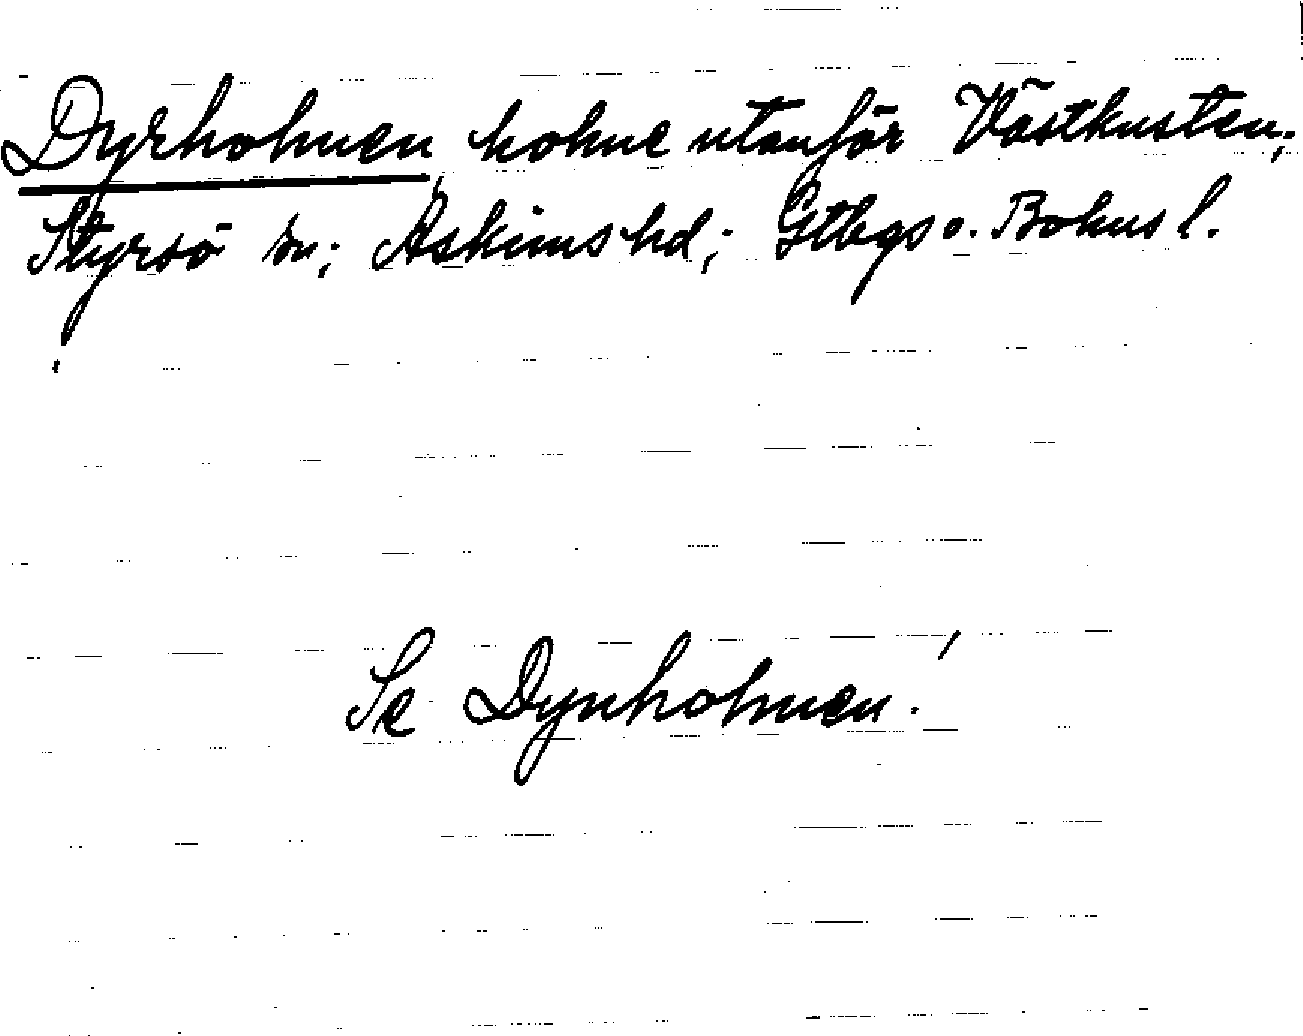 Dyrholmen, holme utanför Västkusten;
Styrsö sn; Askims hd; Gtbgs o. Bohus l.
Se Dynholmen!